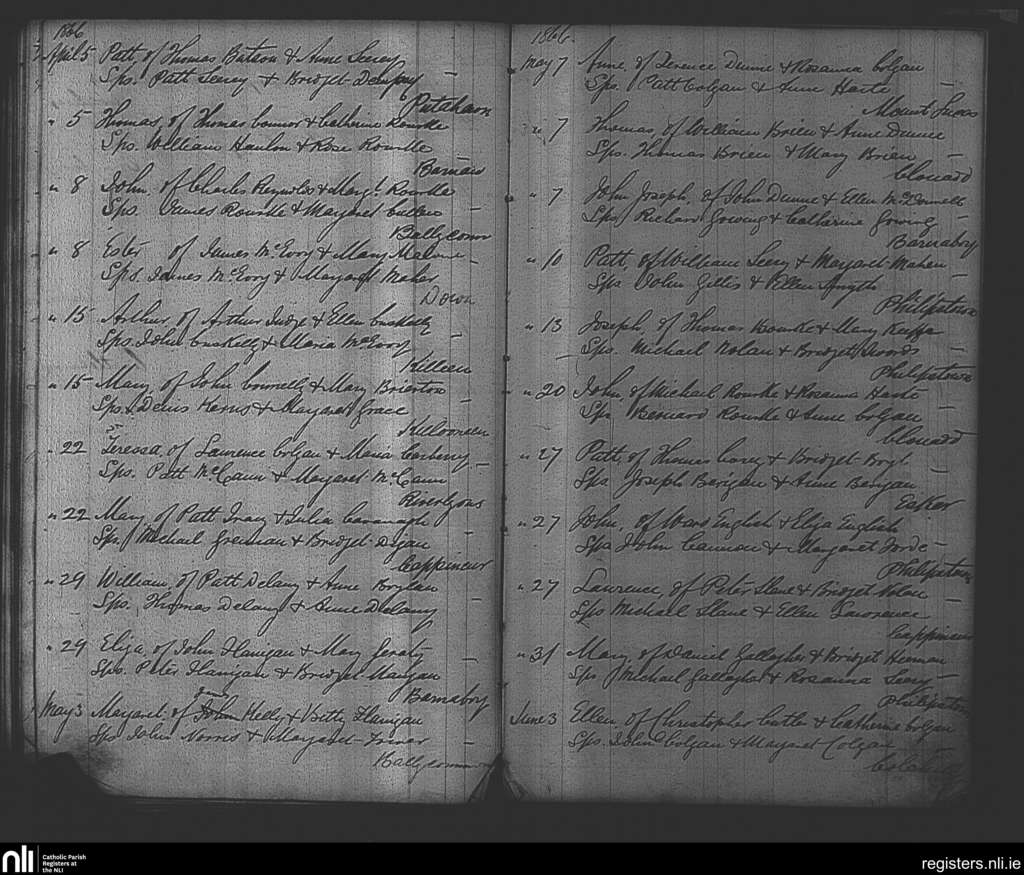 1866
April 5 Patt, of Thomas Batson & Anne Seery
Sps. Patt Seery & Bridget Dempsey —
" 5 Thomas, of Thomas Connor & Catherine Rourke
Sps. William Hanlon & Rose Rourke
Barnan
" 8 John, of Charles Reynolds & Margt. Rourke
Sps. James Rourke & Margaret
Ballycommon
" 8 Ester of James McEvoy & Mary Malone
Sps. James McEvoy & Margaret Maher —
Down
" 15 Arthur, of Arthur Judge & Ellen Cuskelly
Sps. John Cuskelly & Maria McEvoy —
Killeen
" 15 Mary, of John Connelly & Mary Brierton
Sps. Denis Kerns & Margaret Grace —
" 22 Teressa, of Laurence Colgan & Maria Carberry
Sps. Patt McCann & Margaret McCann —
Riverlyons
" 22 Mary, of Patt Tracy & Julia Cavanagh
Sps. Michael Grennan & Bridget Digan —
Cappincur
" 29 William, of Patt Delany & Anne Boylan
Sps. Thomas Delany & Anne Delany
" 29 Eliza, of John Flanigan & Mary Geraty
Sps. Peter Flanigan & Bridget Mangan —
Barnaboy
May 3 Margaret, of John Kelly & Betty Flanigan
Sps. John Norris & Margaret —
Ballycommon
1866
May 7 Anne, of Terence Dunne & Rosanna Colgan
Sps. Patt Colgan & Anne Harte —
Mount Lucas
" 7 Thomas, of William Brien & Anne Dunne
Sps. Thomas Brien & Mary Brien —
Clonard
" 7 John Joseph, of John Dunne & Ellen McDonnell
Sps. Richard Gowing & Catharine Gowing —
Barnaboy
" 10 Patt, of William Seery & Margaret Maher
Sps. John Gillis & Ellen Smyth —
Philipstown
" 13 Joseph, of Thomas Bourke & Mary Keeffe
Sps. Michael Nolan & Bridget Swords —
Philipstown
" 20 John, of Michael Rourke & Rosanna Harte
Sps. Bernard Rourke & Anne Colgan —
Clonard
" 27 Patt, of Thomas Carey & Bridget
Sps. Joseph Berigan & Anne Berigan —
Esker
" 27 John, of English & Eliza English
Sps. John Cannon & Margaret Forde —
Philipstown
" 27 Lawrence, of Peter Slane & Bridget Nolan
Sps. Michael Slane & Ellen Lawrence —
Cappincur
" 31 Mary, of Daniel Gallagher & Bridget Heenan
Sps. Michael Gallagher & Rosanna Seery —
Philipstown
June 3 Ellen, of Christopher Cutler & Catherine Colgan
Sps. John Colgan & Margaret Colgan —
nli
Catholic Parish
Registers at
the NLI
registers.nli.ie